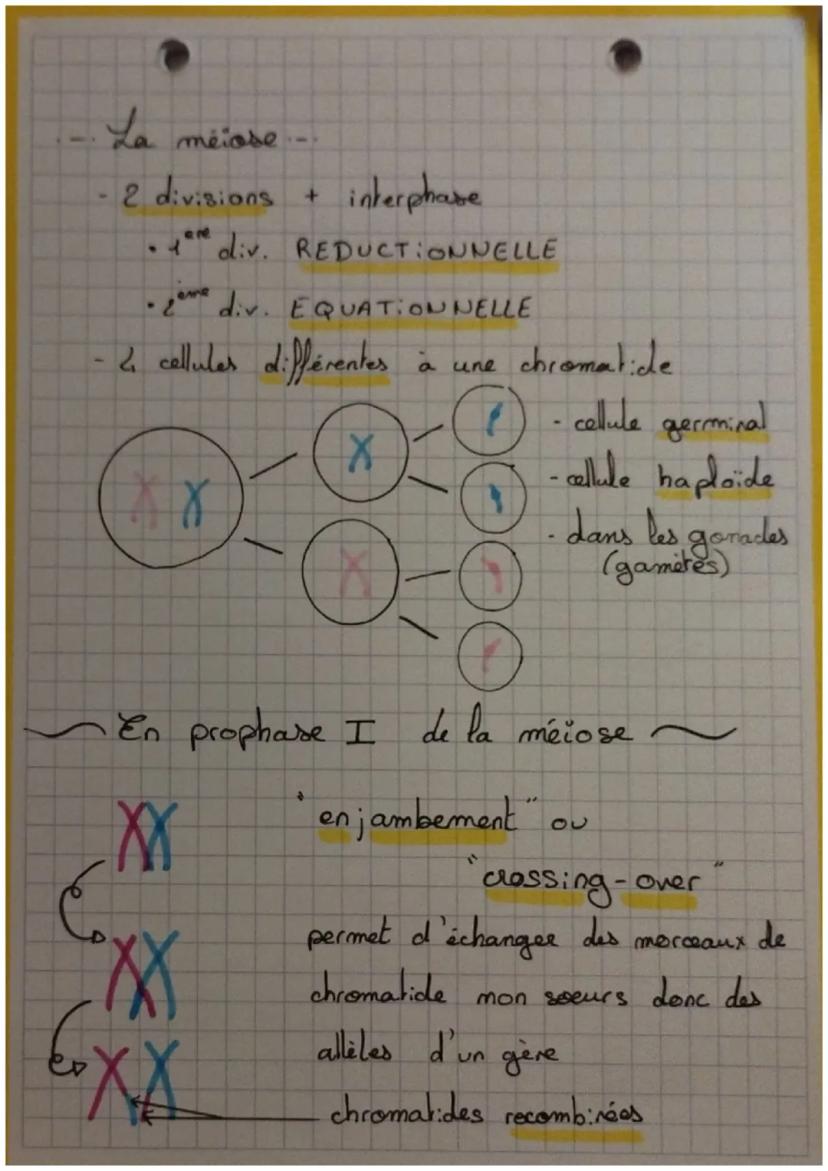 -- La méiose --
- 2 divisions + interphase
• 1ère div. REDUCTiONNELLE
• 2ème div. EQUATiONNELLE
- 4 cellules différentes à une chromatide
- cellule germinal
- cellule haploïde
- dans les gonades
(gamètes)
~ En prophase I de la méiose ~
"enjambement" ou
"crossing-over"
permet d'échanger des morceaux de
chromatide non soeurs donc des
allèles d'un gène
chromatides recombinées